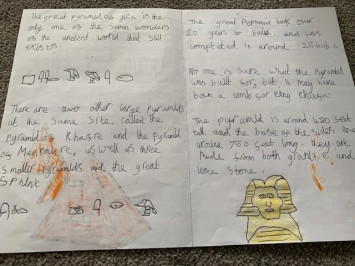 The great pyramid of giza is the
only one of the seven wonders
of the ancient world that still
exists
There are two other large pyramids
at the same site, called the
Pyramid of Khafre and the Pyramid
of Menkaure, as well as three
smaller pyramids and the great
Sphinx
The great Pyramid took over
20 years to build and was
completed in around 2560 b.c.
No one is sure what the Pyramid
was built for, but it may have
been a tomb for king Khufu.
The pyramid is around 450 feet
tall and the base of the sides are
around 750 feet long. they are
made from both granite and
lime stone.